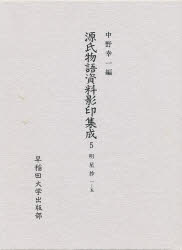 中野幸一編
源氏物語資料影印集成
5 明星抄 一~五
早稲田大学出版部